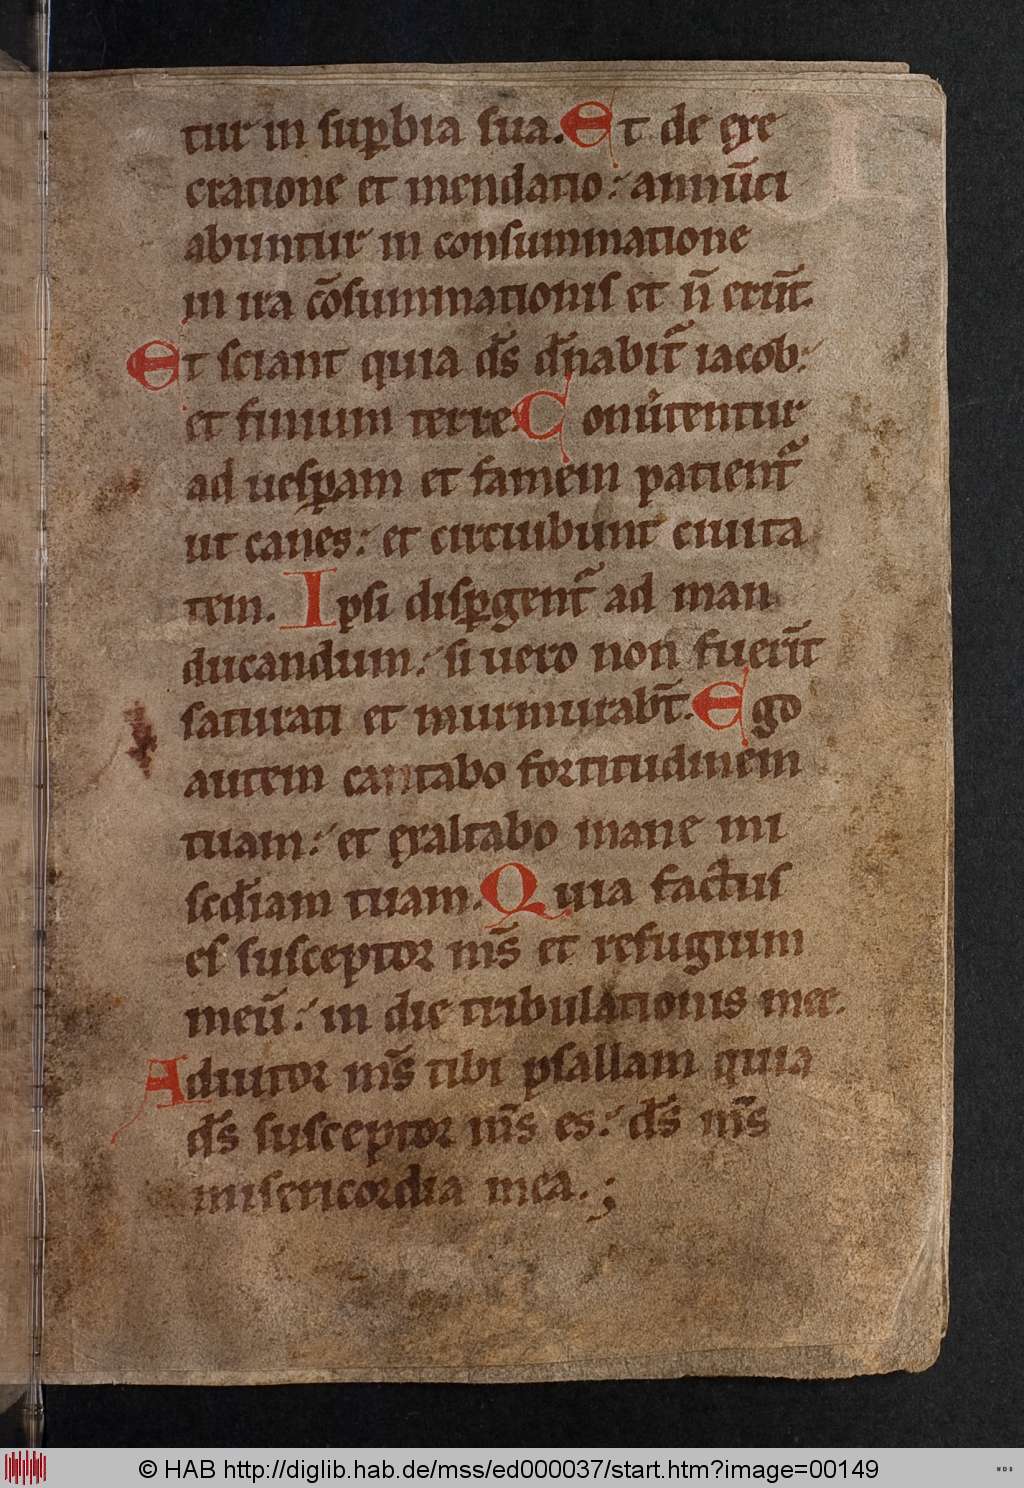 tur in sup̱bia sua. Et de exe
cratione et mendatio: annūci
abuntur in consummatione
in ira cōsummationis et n̄ erūt.
Et sciant quia ds̄ dn̄abit᷑ iacob:
et finium terre. Conuͥtentur
ad uesp̱am et famem patient᷑
ut canes: et circuibunt ciuita
tem. Ipsi disp̱gent᷑ ad man
ducandum: si uero non fuerīt
saturati et murmurabt̄. Ego
autem cantabo fortitudinem
tuam: et exaltabo mane mi
sedi̅am tuam. Quia factus
es susceptor ms̄ et refugium
meū: in die tribulationis mee.
Adiutor ms̄ tibi psallam quia
ds̄ susceptor ms̄ es: ds̄ ms̄
misericordia mea.;
© HAB http://diglib.hab.de/mss/ed000037/start.htm?image=00149